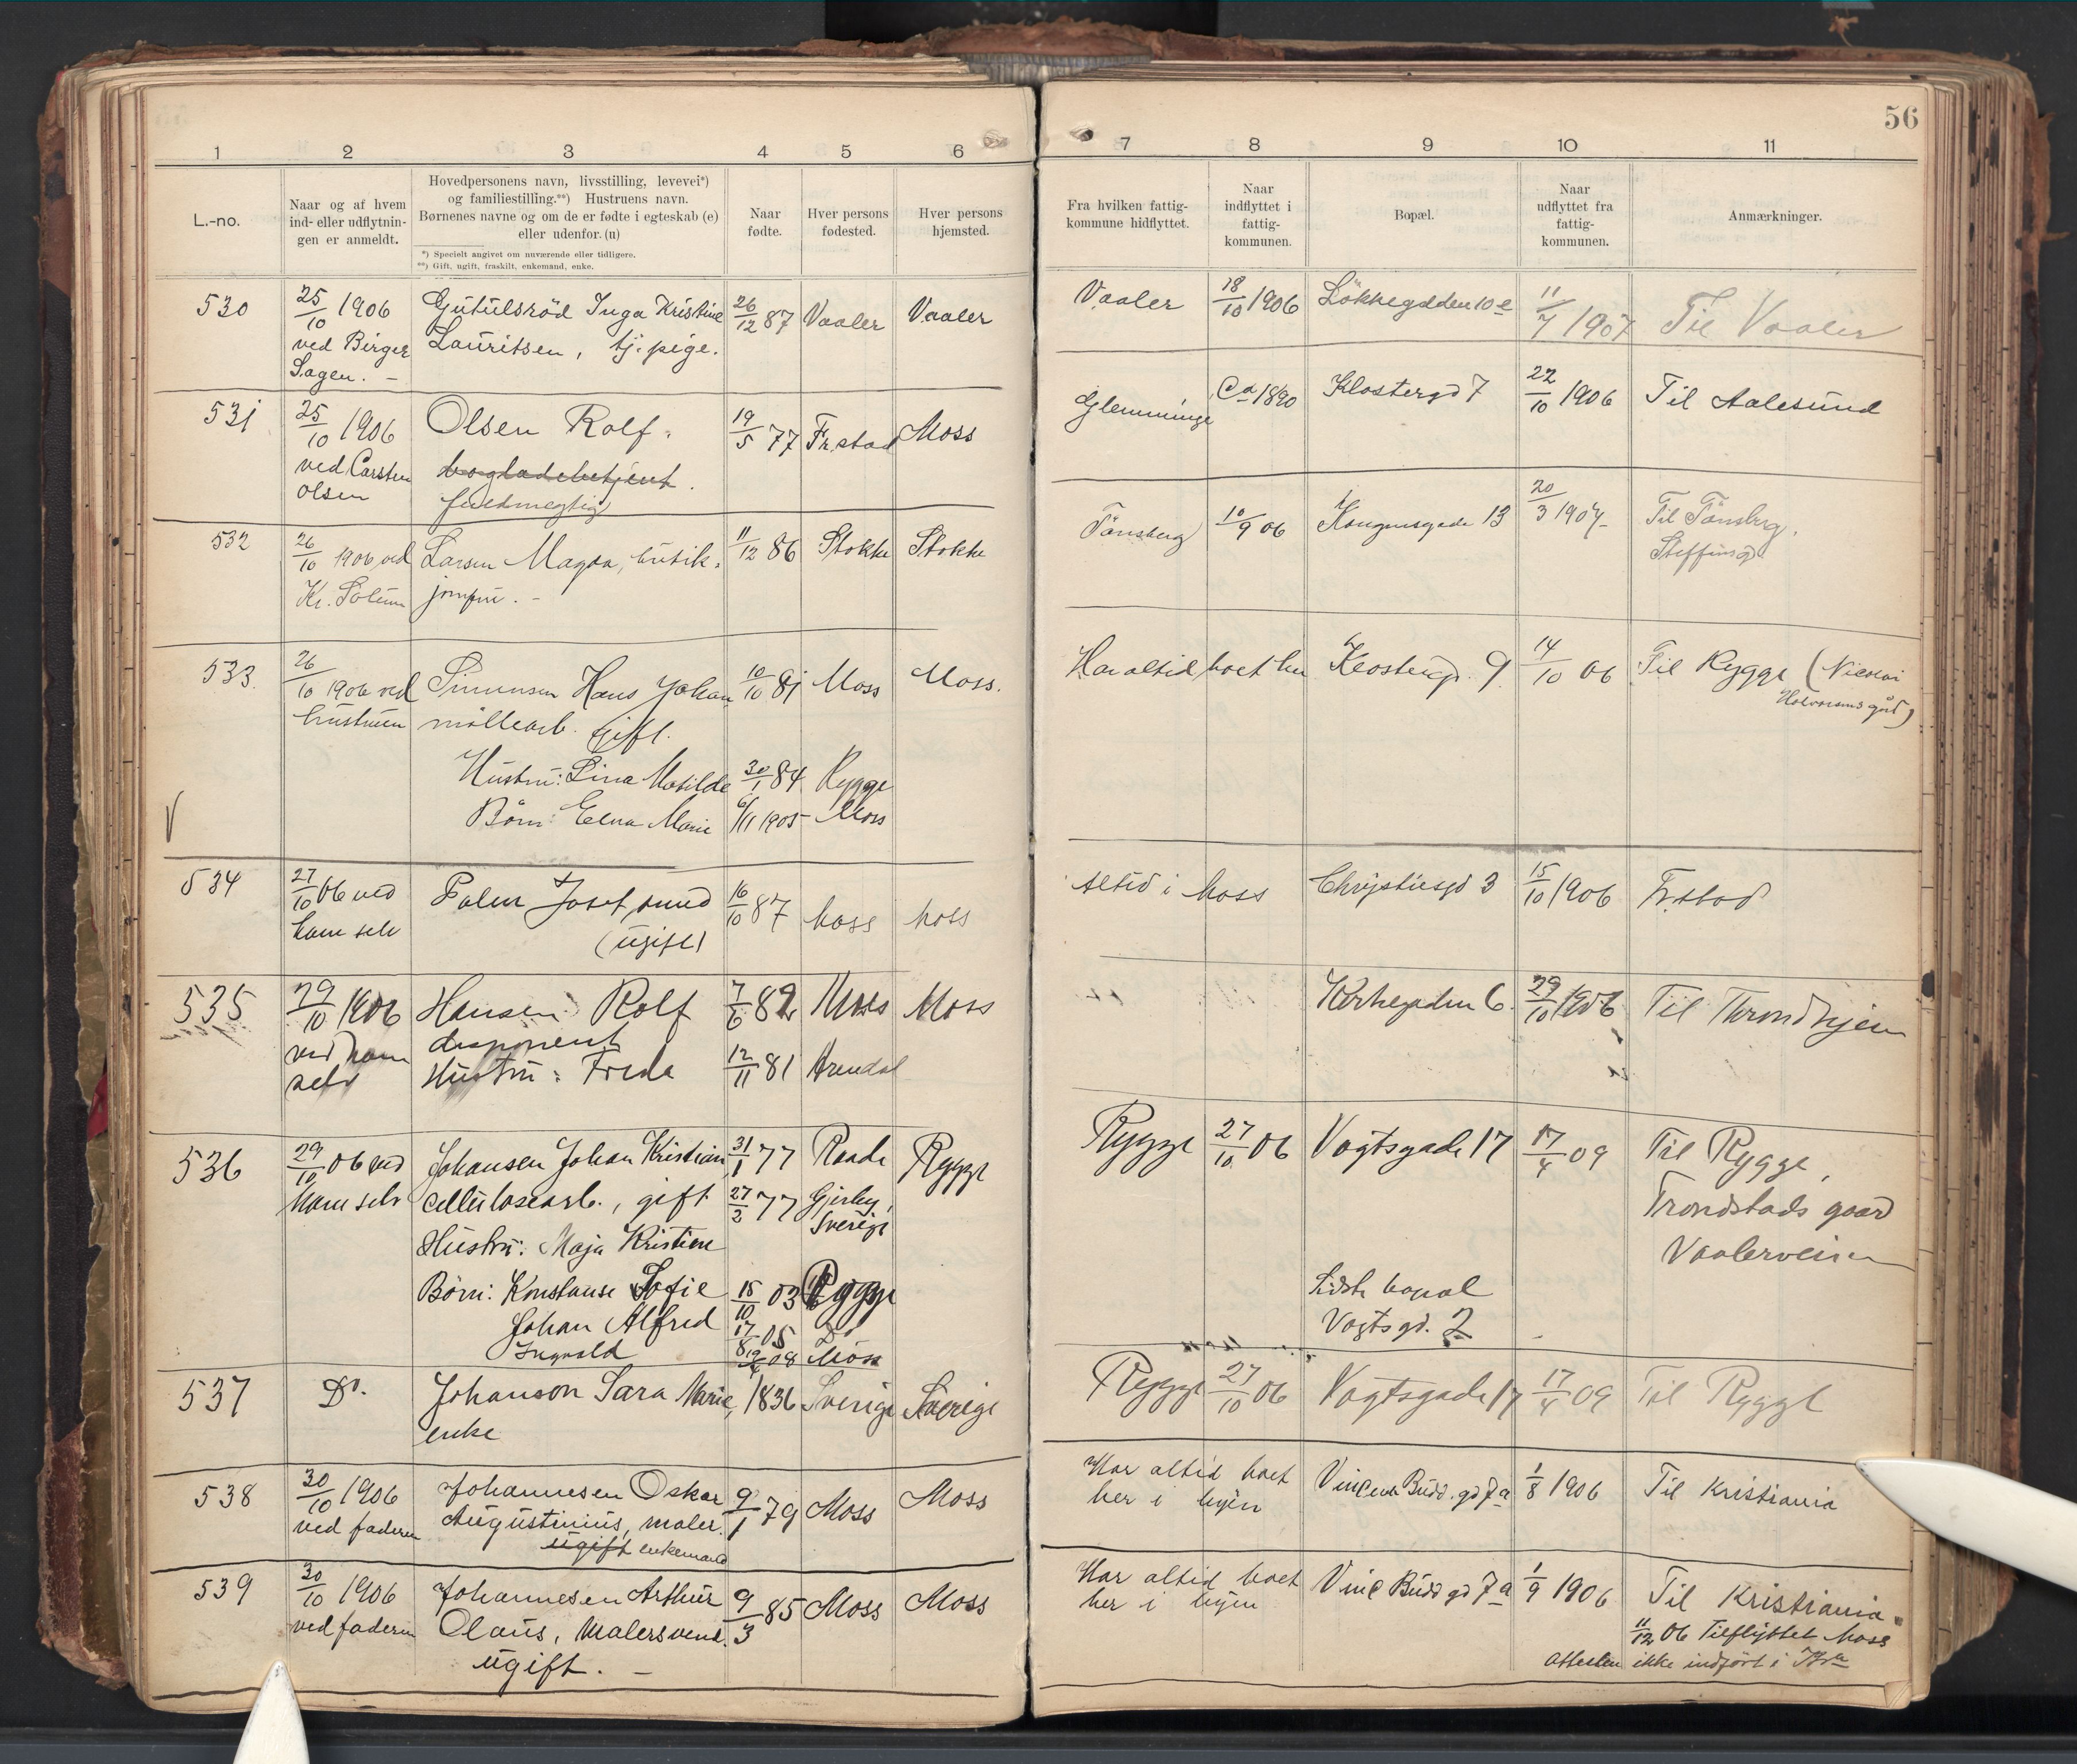 56
1 2 3 4 5 6 7 8 9 10 11
L.-no.
Naar og af hvem
ind- eller udflytnin-
gen er anmeldt.
Hovedpersonens navn, livsstilling, levevei*)
og familiestilling.**) Hustruens navn.
Børnenes navne og om de er fødte i egteskab (e)
eller udenfor. (u)
*) Specielt angivet om nuværende eller tidligere.
**) Gift, ugift, fraskilt, enkemand, enke.
Naar
fødte.
Hver persons
fødested.
Hver persons
hjemsted.
Fra hvilken fattig-
kommune hidflyttet.
Naar
indflyttet i
fattig-
kommunen.
Bopæl.
Naar
udflyttet fra
fattig-
kommunen.
Anmærkninger.
530 25/10 1906 Gutulsröd Inga Kristine 26/12 87 Vaaler Vaaler Vaaler 18/10 1906 Løkkegadden 10 e 11/7 1907 Til Vaaler
ved Birger Lauritsen, tj. pige.
Sagen. –
531 25/10 1906 Olsen Rolf. 19/5 77 Fr.stad Moss Glemminge Ca 1890 Klostergd 7 22/10 1906 Til Aalesund
ved Carsten bogladebetjent.
Olsen fuldmegtig
532 26/10 1906 ved Larsen Magda, butik- 11/12 86 Stokke Stokke Tønsberg 10/9 06 Kongensgade 13 20/3 1907 Til Tønsberg.
Kr. Solum jomfru. –
533 26/10 1906 ved Simensen Hans Johan 10/10 81 Moss Moss. Har altid boet her Klostergd. 9 14/10 06 Til Rygge (Nicolai
hustruen møllearb. gift.
Hustru: Lina Matilde 30/1 84 Rygge
Børn: Elna Marie 6/11 1905 Moss
V
534 27/10 06 ved Palm Josef, smed 16/10 87 Moss Moss Altid i Moss Chrystiesgd 3 15/10 1906 Fr.stad
ham selv (ugift)
535 29/10 1906 Hansen Rolf 7/6 82 Moss Moss Kirkegaden 6 29/10 1906 Til Throndhjem
ved ham disponent
selv Hustru: Freda 12/11 81 Arendal
536 29/10 06 ved Johansen Johan Kristian 31/1 77 Raade Rygge Rygge 27/10 06 Vogtsgade 17 17/4 09 Til Rygge,
ham selv cellulosearb., gift 27/2 77 Gjesby, Sverige Trondstads gaard
Hustru: Maja Kristine Vaalerveien
Børn: Konstanse Sofie 15/10 03 Rygge Sidste bopæl
Johan Alfred 17/8 05 Do Vogtsgd. 2
Ingvald 19/4 08 Moss
537 Do. Johanson Sara Marie, 1836 Sverige Sverige Rygge 27/10 06 Vogtsgade 17 17/4 09 Til Rygge
enke
538 30/10 1906 Johannesen Oskar 9/1 79 Moss Moss Har altid boet Vincen Budd. gd 7a 1/8 1906 Til Kristiania
ved faderen Augustinius, maler. her i byen
ugift enkemand
539 30/10 1906 Johannesen Arthur 9/3 85 Moss Moss Har altid boet Vinc Budd gd 7a 1/9 1906 Til Kristiania
ved faderen Olaus, Malersvend. her i byen 11/12 06 Tilflyttet Moss
ugift. – attesten ikke indført i Kra